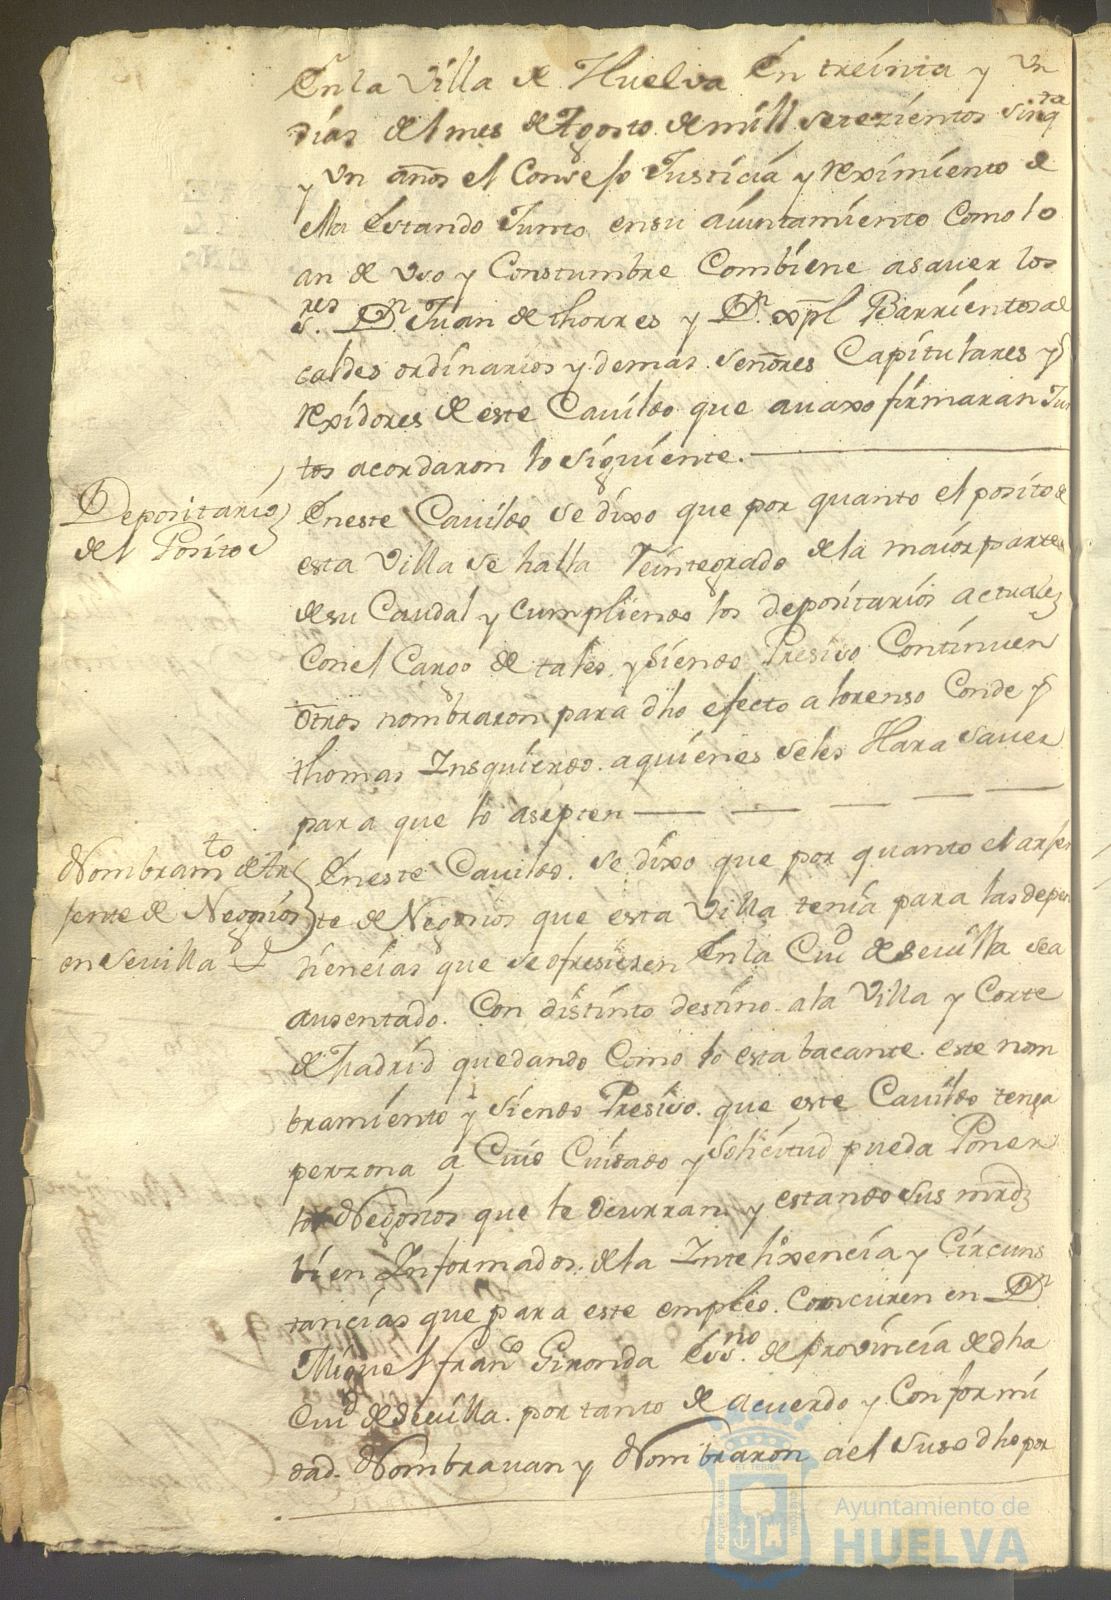 En la Villa de Huelva En treinta y Un
dias del mes de Agosto de mill setezientos sinq.ta
y Un años el Consejo Justicia y reximiento de
ella Estando Junto en su aiuntamiento Como lo
an de Uso y Constumbre Combiene a sauer los
s.res D.n Juan de thorres y D.n xpl Barrientos al
caldes ordinarios y demas señores Capitulares y
rexidores de este Cauildo que auaxo firmaran Jun
tos acordaron lo siguiente.
Depositarios
del Posito
En este Cauildo se dixo que por quanto el posito de
esta Villa se halla reintegrado de la maior parte
de su Caudal y cumpliendo los depositarios actuales
Con el Cargo de tales y siendo Presiso Continuen
otros nombraron para dho efecto a lorenso Conde y
thomas Insquierdo a quienes seles Hara sauer
para que lo asepten
Nombram.to de Ar
jente de Negosios
en Seuilla
En este Cauildo. se dixo que por quanto el arjen
te de Negosios que esta Villa tenia para las depen
diencias que se ofresieren En la Ciud de Seuilla sea
ausentado. Con distinto destino a la Villa y Corte
de Madrid quedando Como lo esta bacante este nom
bramiento y siendo Presiso. que este Cauildo tenga
perzona a Cuio Cuidado y solicitud pueda Poner
los Negosios que le ocurran y estando sus mrdz
bien Informados de la Intelixencia y Circuns
tancias que para este empleo. Concurren en D.n
Miguel fran.co Gironda Ess.no de provincia de dha
Ciud de Seuilla. por tanto de acuerdo y Conformi
dad. Nombrauan y Nombraron a el suso dho por
Ayuntamiento de
HUELVA